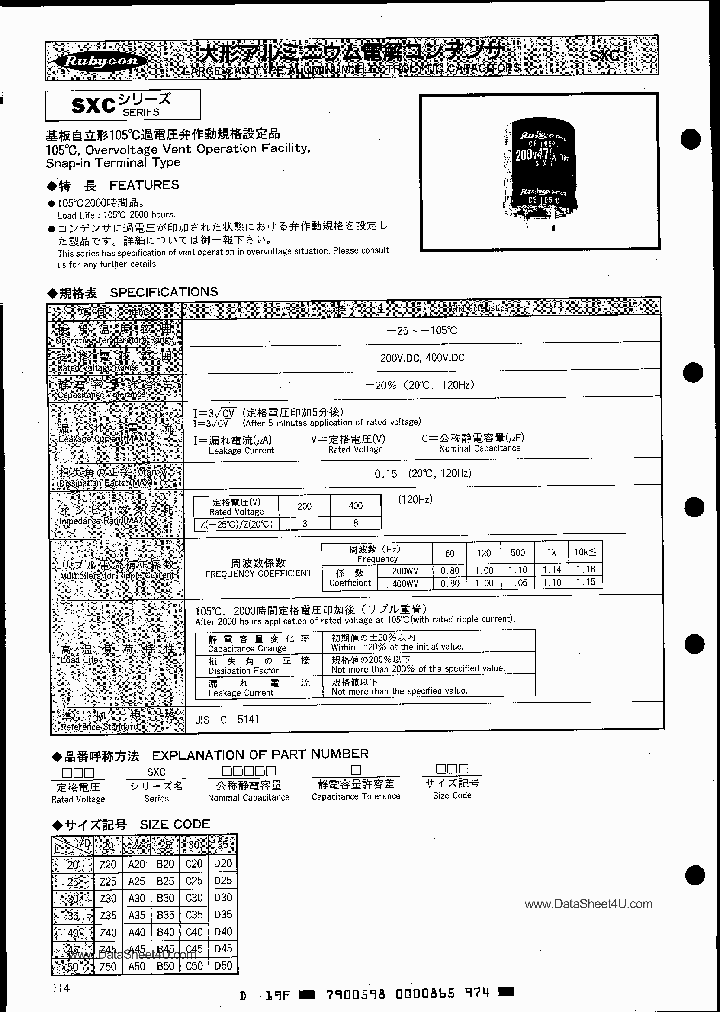 Rubycon
大形アルミニウム電解コンデンサ
LARGE SNAP TYPE ALUMINUM ELECTROLYTIC CAPACITORS
SXC
SXCシリーズ
SERIES
基板自立形105℃過電圧弁作動規格設定品
105℃, Overvoltage Vent Operation Facility,
Snap-in Terminal Type
Rubycon
200V47
◆特 長 FEATURES
● 105℃2000時間品。
Load Life : 105℃ 2000 hours.
● コンデンサに過電圧が印加された状態における弁作動規格を設定し
た製品です。詳細については御一報下さい。
This series has specification of vent operation in overvoltage situation. Please consult
us for any further details.
◆規格表 SPECIFICATIONS
−25 ~ −105℃
Operating Temperature Range
200V.DC, 400V.DC
Rated Voltage Range
−20% (20℃, 120Hz)
Capacitance Tolerance
I=3√CV (定格電圧印加5分後)
I=3√CV (After 5 minutes application of rated voltage)
Leakage Current(MAX)
I=漏れ電流(μA) V=定格電圧(V) C=公称静電容量(μF)
Leakage Current Rated Voltage Nominal Capacitance
0.15 (20℃, 120Hz)
Dissipation Factor(MAX)
定格電圧(V) 200 400 (120Hz)
Rated Voltage
Z(−25℃)/Z(20℃) 3 8
Impedance Ratio(MAX)
周波数係数
FREQUENCY COEFFICIENT
周波数 (Hz) 60 120 500 1k 10k≤
Frequency
係 数 200WV 0.80 1.00 1.10 1.14 1.16
Coefficient 400WV 0.80 1.00 1.05 1.10 1.15
105℃, 2000時間定格電圧印加後 (リプル重畳)
After 2000 hours application of rated voltage at 105℃(with rated ripple current).
静電容量変化率 初期値の±20%以内
Capacitance Change Within −20% of the initial value.
損失角の正接 規格値の200%以下
Dissipation Factor Not more than 200% of the specified value.
漏れ電流 規格値以下
Leakage Current Not more than the specified value.
Load Life
JIS C 5141
Reference Standard
◆品番呼称方法 EXPLANATION OF PART NUMBER
□□□ SXC □□□□□ □ □□□
定格電圧 シリーズ名 公称静電容量 静電容量許容差 サイズ記号
Rated Voltage Series Nominal Capacitance Capacitance Tolerance Size Code
◆サイズ記号 SIZE CODE
20 Z20 A20 B20 C20 D20
25 Z25 A25 B25 C25 D25
30 Z30 A30 B30 C30 D30
35 Z35 A35 B35 C35 D35
40 Z40 A40 B40 C40 D40
45 Z45 A45 B45 C45 D45
50 Z50 A50 B50 C50 D50
www.DataSheet4U.com
www.DataSheet4U.com
114
D -19F 7900598 0000865 974